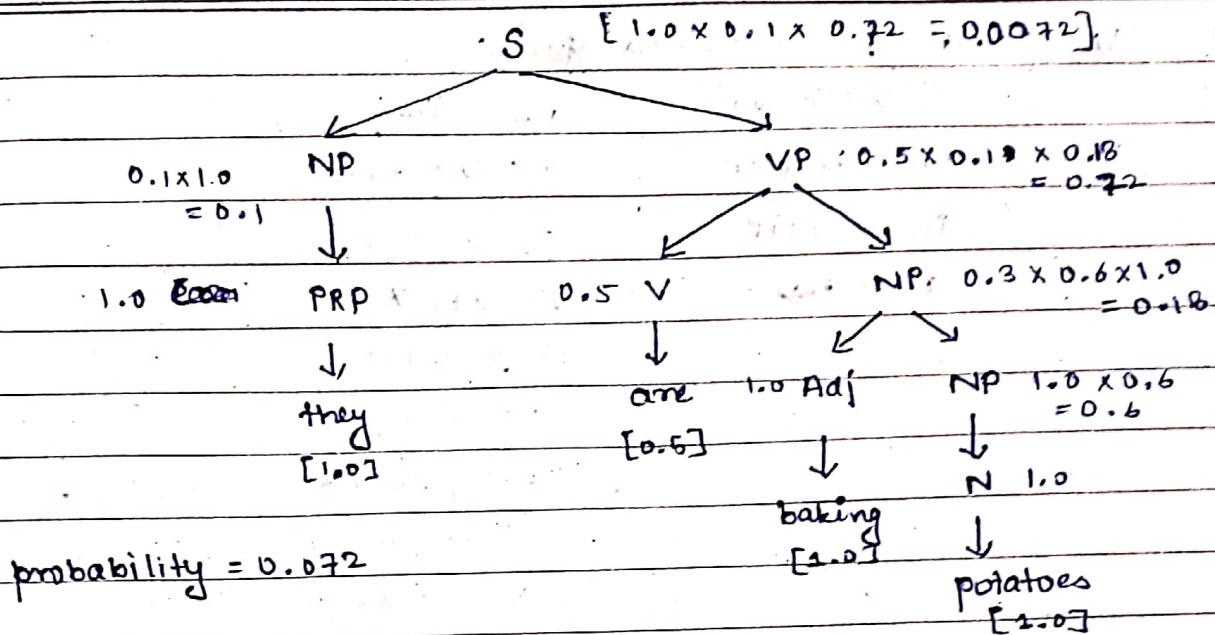 S [1.0 x 0.1 x 0.72 = 0.0072]
NP
0.1x1.0
= 0.1
VP : 0.5 x 0.1 x 0.18
= 0.72
1.0 PRP
0.5 V
NP. 0.3 x 0.6 x 1.0
= 0.18
they
[1.0]
are
[0.5]
1.0 Adj
NP 1.0 x 0.6
= 0.6
baking
[1.0]
N 1.0
potatoes
[1.0]
probability = 0.072